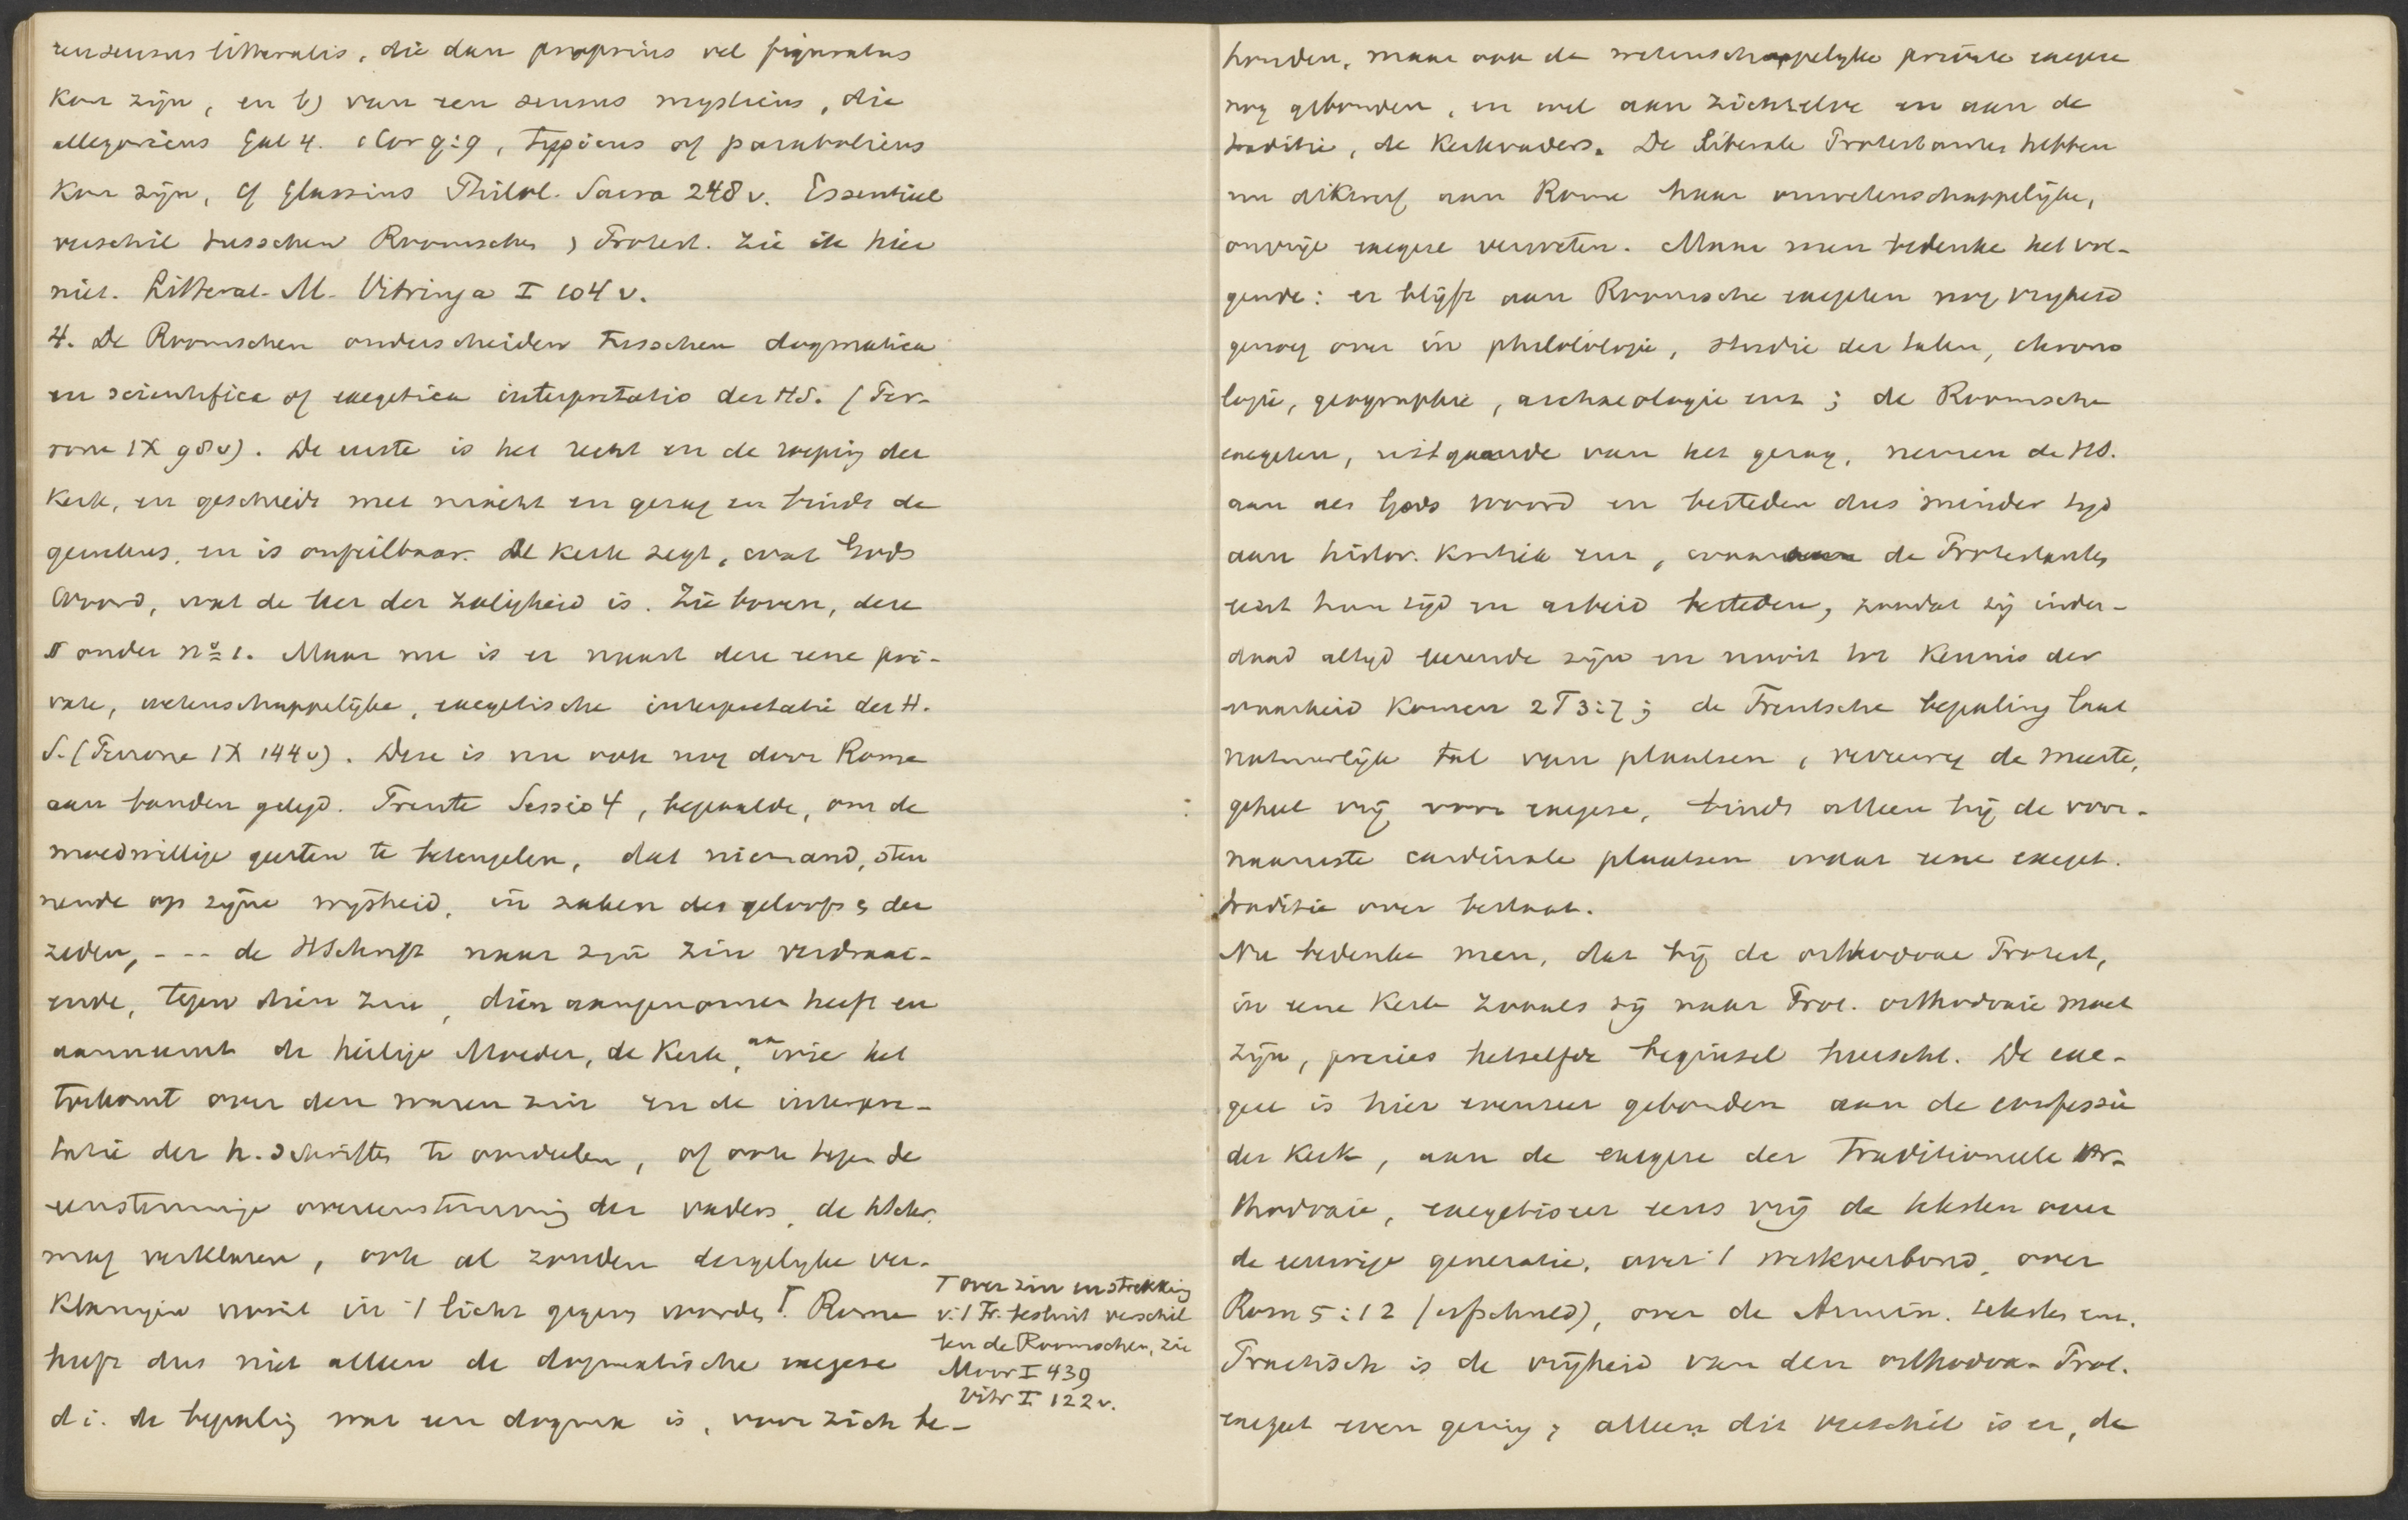 een sensus litteralis, die dan proprius vel figuratus
kan zijn, en b) van een sensus mysticus, die
allegoricus Gal 4. 1 Cor 9:9, typicus of parabolicus
kan zijn, cf Glassius Philol. Sacra 248 v. Essentieel
verschil tusschen Roomschen & Protest. zie ik hier
niet. Litterat. M. Vitringa I 104 v.
4. De Roomschen onderscheiden tusschen dogmatica
en scientifica of exegetica interpretatio der HS. (Per-
rone IX 98 v). De eerste is het recht en de roeping der
Kerk, en geschiedt met macht en gezag en bindt de
gemeens, en is onfeilbaar. De Kerk zegt, wat Gods
Woord, wat de leer der zaligheid is. Zie boven, deze
§ onder no 1. Maar nu is er naast deze eene pri-
vate, wetenschappelijke, exegetische interpretatie der H.
S. (Perrone IX 144 v). Deze is nu ook nog door Rome
aan banden gelegd. Trente Sessio 4, bepaalde, om de
moedwillige geesten te beteugelen, dat niemand, steu
nende op zijne wijsheid, in zaken des geloofs & der
zeden, - - - de HSchrift naar zijn zin verdraai-
ende, tegen dien zin, dien aangenomen heeft en
aanneemt de heilige Moeder, de Kerk, aan wie het
toekomt over den waren zin en de interpre-
tatie der h. Schriften te oordeelen, of ook tegen de
eenstemmige overeenstemming der vaders, de hSchr.
mag verklaren, ook al zouden dergelijke ver-
klaringen nooit in 't licht gegeven worden ⊤. Rome
heeft dus niet alleen de dogmatische exegese
d i. de bepaling wat een dogma is, voor zich be-
⊤ over zin en strekking
v. 't Tr. besluit verschil
len de Roomschen, zie
Moor I 439
Vitr I 122 v.
houden, maar ook de wetenschappelijke private exegese
nog gebonden, en wel aan zichzelve en aan de
traditie, de Kerkvaders. De liberale Protestanten hebben
nu dikwerf aan Rome haar onwetenschappelijke,
onvrije exegese verweten. Maar men bedenke het vol-
gende: er blijft aan Roomsche exegeten nog vrijheid
genoeg over in philologie, studie der talen, chrono
logie, geographie, archaeologie enz; de Roomsche
exegeten, uitgaande van het gezag, nemen de HS.
aan als Gods Woord en besteden dus minder tijd
aan histor. kritiek enz, waaraan de Protestanten
eerst hun tijd en arbeid besteden, zoodat zij inder-
daad altijd leerende zijn en nooit tot kennis der
waarheid komen 2 T 3:7; de Trentsche bepaling laat
natuurlijk tal van plaatsen, verreweg de meeste,
geheel vrij voor exegese, bindt alleen bij de voor-
naamste cardinale plaatsen waar eene exeget.
traditie over bestaat.
Nu bedenke men, dat bij de orthodoxe Protest,
in eene Kerk zooals zij naar Prot. orthodoxie moet
zijn, precies hetzelfde beginsel heerscht. De exe-
geet is hier evenzeer gebonden aan de confessie
der Kerk, aan de exegese der traditioneele or-
thodoxie, exegetiseer eens vrij de teksten over
de eeuwige generatie, over 't werkverbond, over
Rom 5:12 (erfschuld), over de Armin. teksten enz.
Practisch is de vrijheid van den orthodox. Prot.
exegeet even gering; alleen dit verschil is er, de